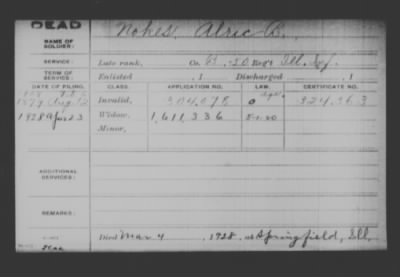 DEAD
NAME OF SOLDIER: Nokes, Alric B.,
SERVICE: Late rank, Co. , 50 Reg't Ill. Inf.
TERM OF SERVICE: Enlisted , 1 Discharged , 1
DATE OF FILING. CLASS. APPLICATION NO. LAW. CERTIFICATE NO.
1879 Aug. 12 Invalid, 304,078 324,363
1928 Apr 23 Widow, 1,611,336 5-1-20
Minor,
ADDITIONAL SERVICES:
REMARKS:
Died Mar 4, 1928, at Springfield, Ill.